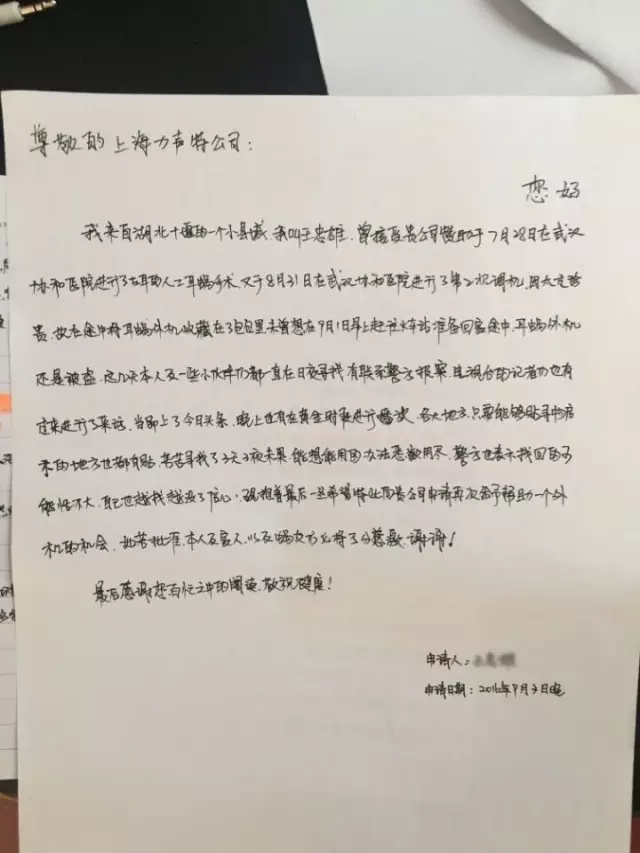 尊敬的上海力声特公司：
您好
我来自湖北十堰的一个小县城 我叫王忠雄，曾接受贵公司赞助于7月28日在武汉
协和医院进行了左耳的人工耳蜗手术，又于8月31日在武汉协和医院进行了第2次调机，因太珍
贵，故在途中将耳蜗外机收藏在了包包里未曾想在9月1日早上赶往火车站准备回家途中，耳蜗外机
还是被盗，这几天本人及一些小伙伴们都一直在日夜寻找 有联系警方报案，电视台的记者们也有
过来进行了采访，当即上了今日头条，晚上也有在黄金时段进行播放，各大地方，只要能够贴寻物启
示的地方也都有贴 苦苦寻找了3天3夜未果 能想能用的办法悉数用尽，警方也表示找回的可
能性不大，自己也越找越没了信心，现抱着最后一丝希望特此向贵公司申请再次给予帮助一个外
机的机会，如若批准，本人及家人，以及蜗友方必将十分感激，谢谢！
最后感谢您百忙之中的阅读，敬祝健康！
申请人：
申请日期：2016年9月3日